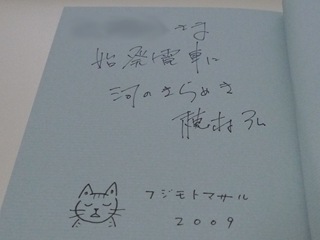 さま
始発電車に
河のきらめき
穂村弘
フジモトマサル
2009